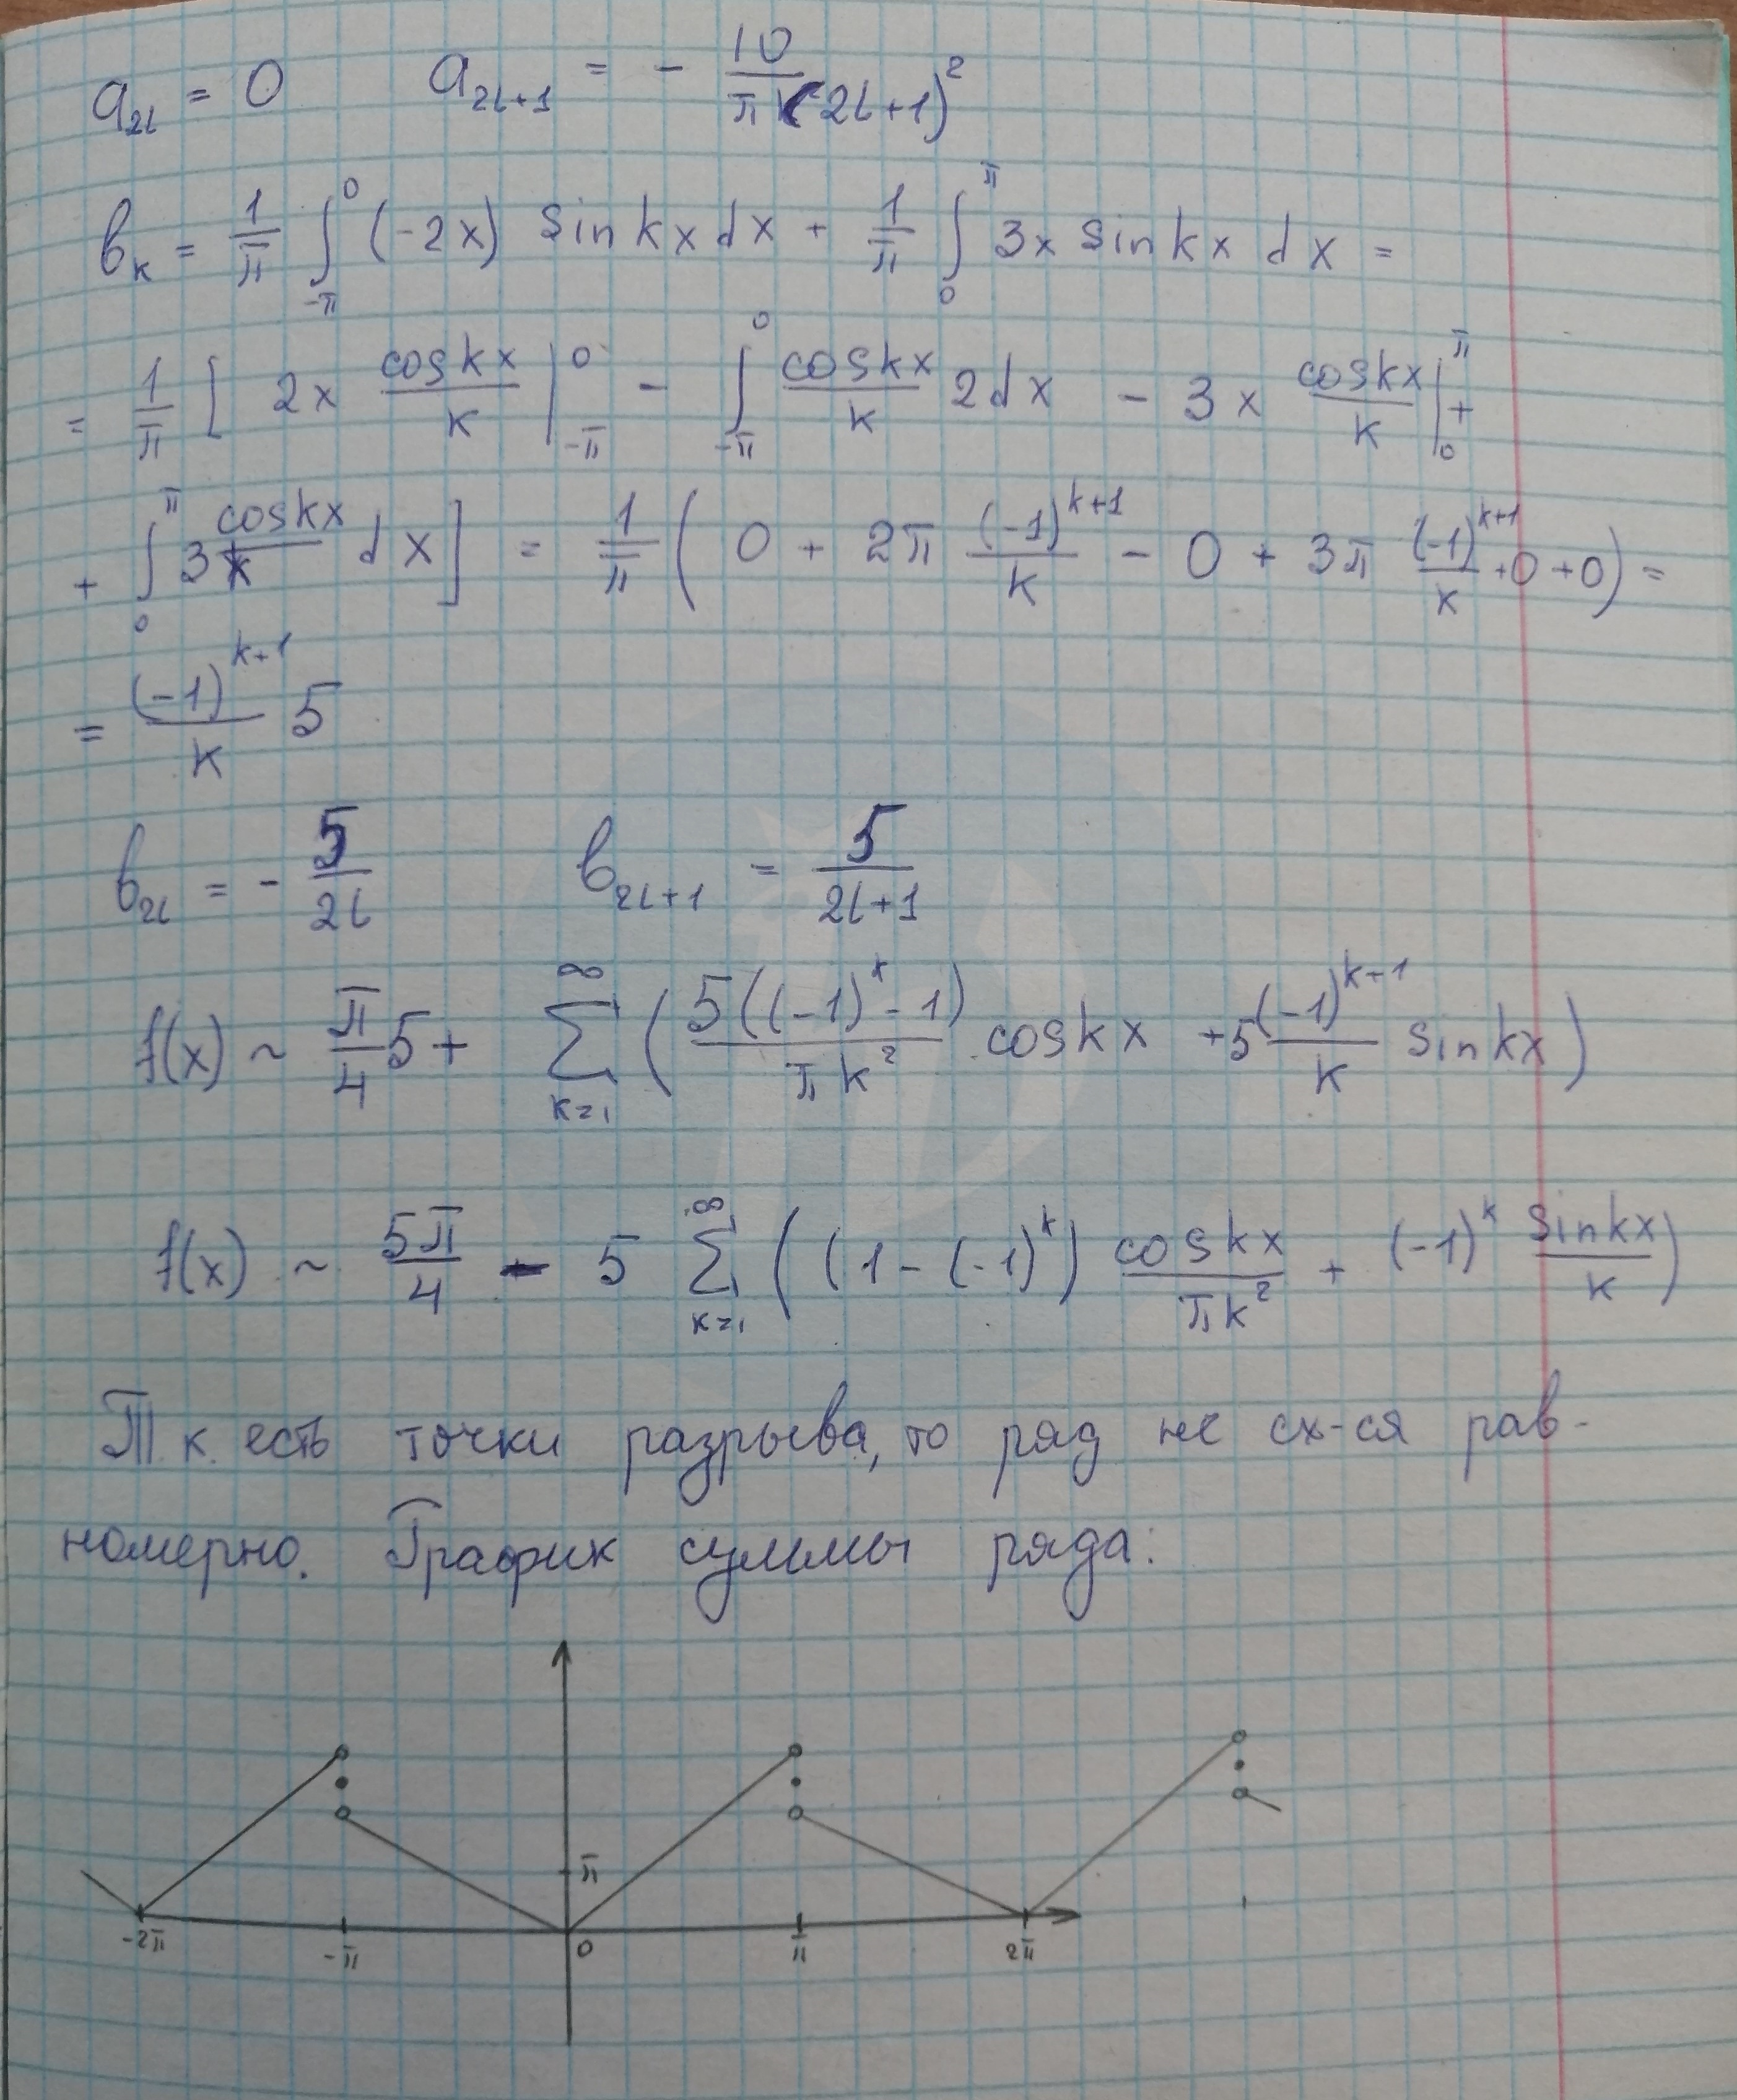 a_{2l} = 0    a_{2l+1} = - \frac{10}{π(2l+1)^2}
b_k = \frac{1}{π} \int_{-π}^{0} (-2x) sin kx dx + \frac{1}{π} \int_{0}^{π} 3x sin kx dx =
= \frac{1}{π} [ 2x \frac{cos kx}{k} |_{-π}^{0} - \int_{-π}^{0} \frac{cos kx}{k} 2dx - 3x \frac{cos kx}{k} |_{0}^{π} +
+ \int_{0}^{π} 3 \frac{cos kx}{k} dx ] = \frac{1}{π} ( 0 + 2π \frac{(-1)^{k+1}}{k} - 0 + 3π \frac{(-1)^{k+1}}{k} + 0 + 0 ) =
= \frac{(-1)^{k+1}}{k} 5
b_{2l} = - \frac{5}{2l}    b_{2l+1} = \frac{5}{2l+1}
f(x) ~ \frac{π}{4} 5 + \sum_{k=1}^{∞} ( \frac{5((-1)^k - 1)}{πk^2} cos kx + 5 \frac{(-1)^{k+1}}{k} sin kx )
f(x) ~ \frac{5π}{4} - 5 \sum_{k=1}^{∞} ( (1 - (-1)^k) \frac{cos kx}{πk^2} + (-1)^k \frac{sin kx}{k} )
Т.к. есть точки разрыва, то ряд не сх-ся рав-
номерно. График суммы ряда:
π
-2π -π 0 π 2π